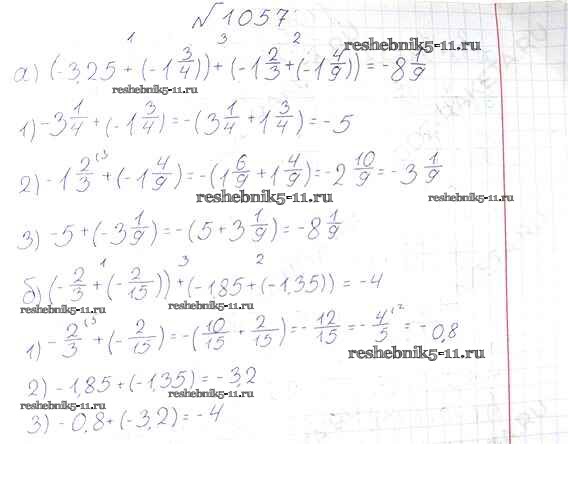 №1057
1 3 2
а) (-3,25 + (-1 3/4)) + (-1 2/3 + (-1 4/9)) = -8 1/9
reshebnik5-11.ru
reshebnik5-11.ru
1) -3 1/4 + (-1 3/4) = -(3 1/4 + 1 3/4) = -5
2) -1 2/3 ⁽³ + (-1 4/9) = -(1 6/9 + 1 4/9) = -2 10/9 = -3 1/9
reshebnik5-11.ru
reshebnik5-11.ru
3) -5 + (-3 1/9) = -(5 + 3 1/9) = -8 1/9
1 3 2
б) (-2/3 + (-2/15)) + (-1,85 + (-1,35)) = -4
reshebnik5-11.ru
1) -2/3 ⁽⁵ + (-2/15) = -(10/15 + 2/15) = -12/15 = -4/5 ⁽² = -0,8
reshebnik5-11.ru
reshebnik5-11.ru
2) -1,85 + (-1,35) = -3,2
reshebnik5-11.ru
3) -0,8 + (-3,2) = -4